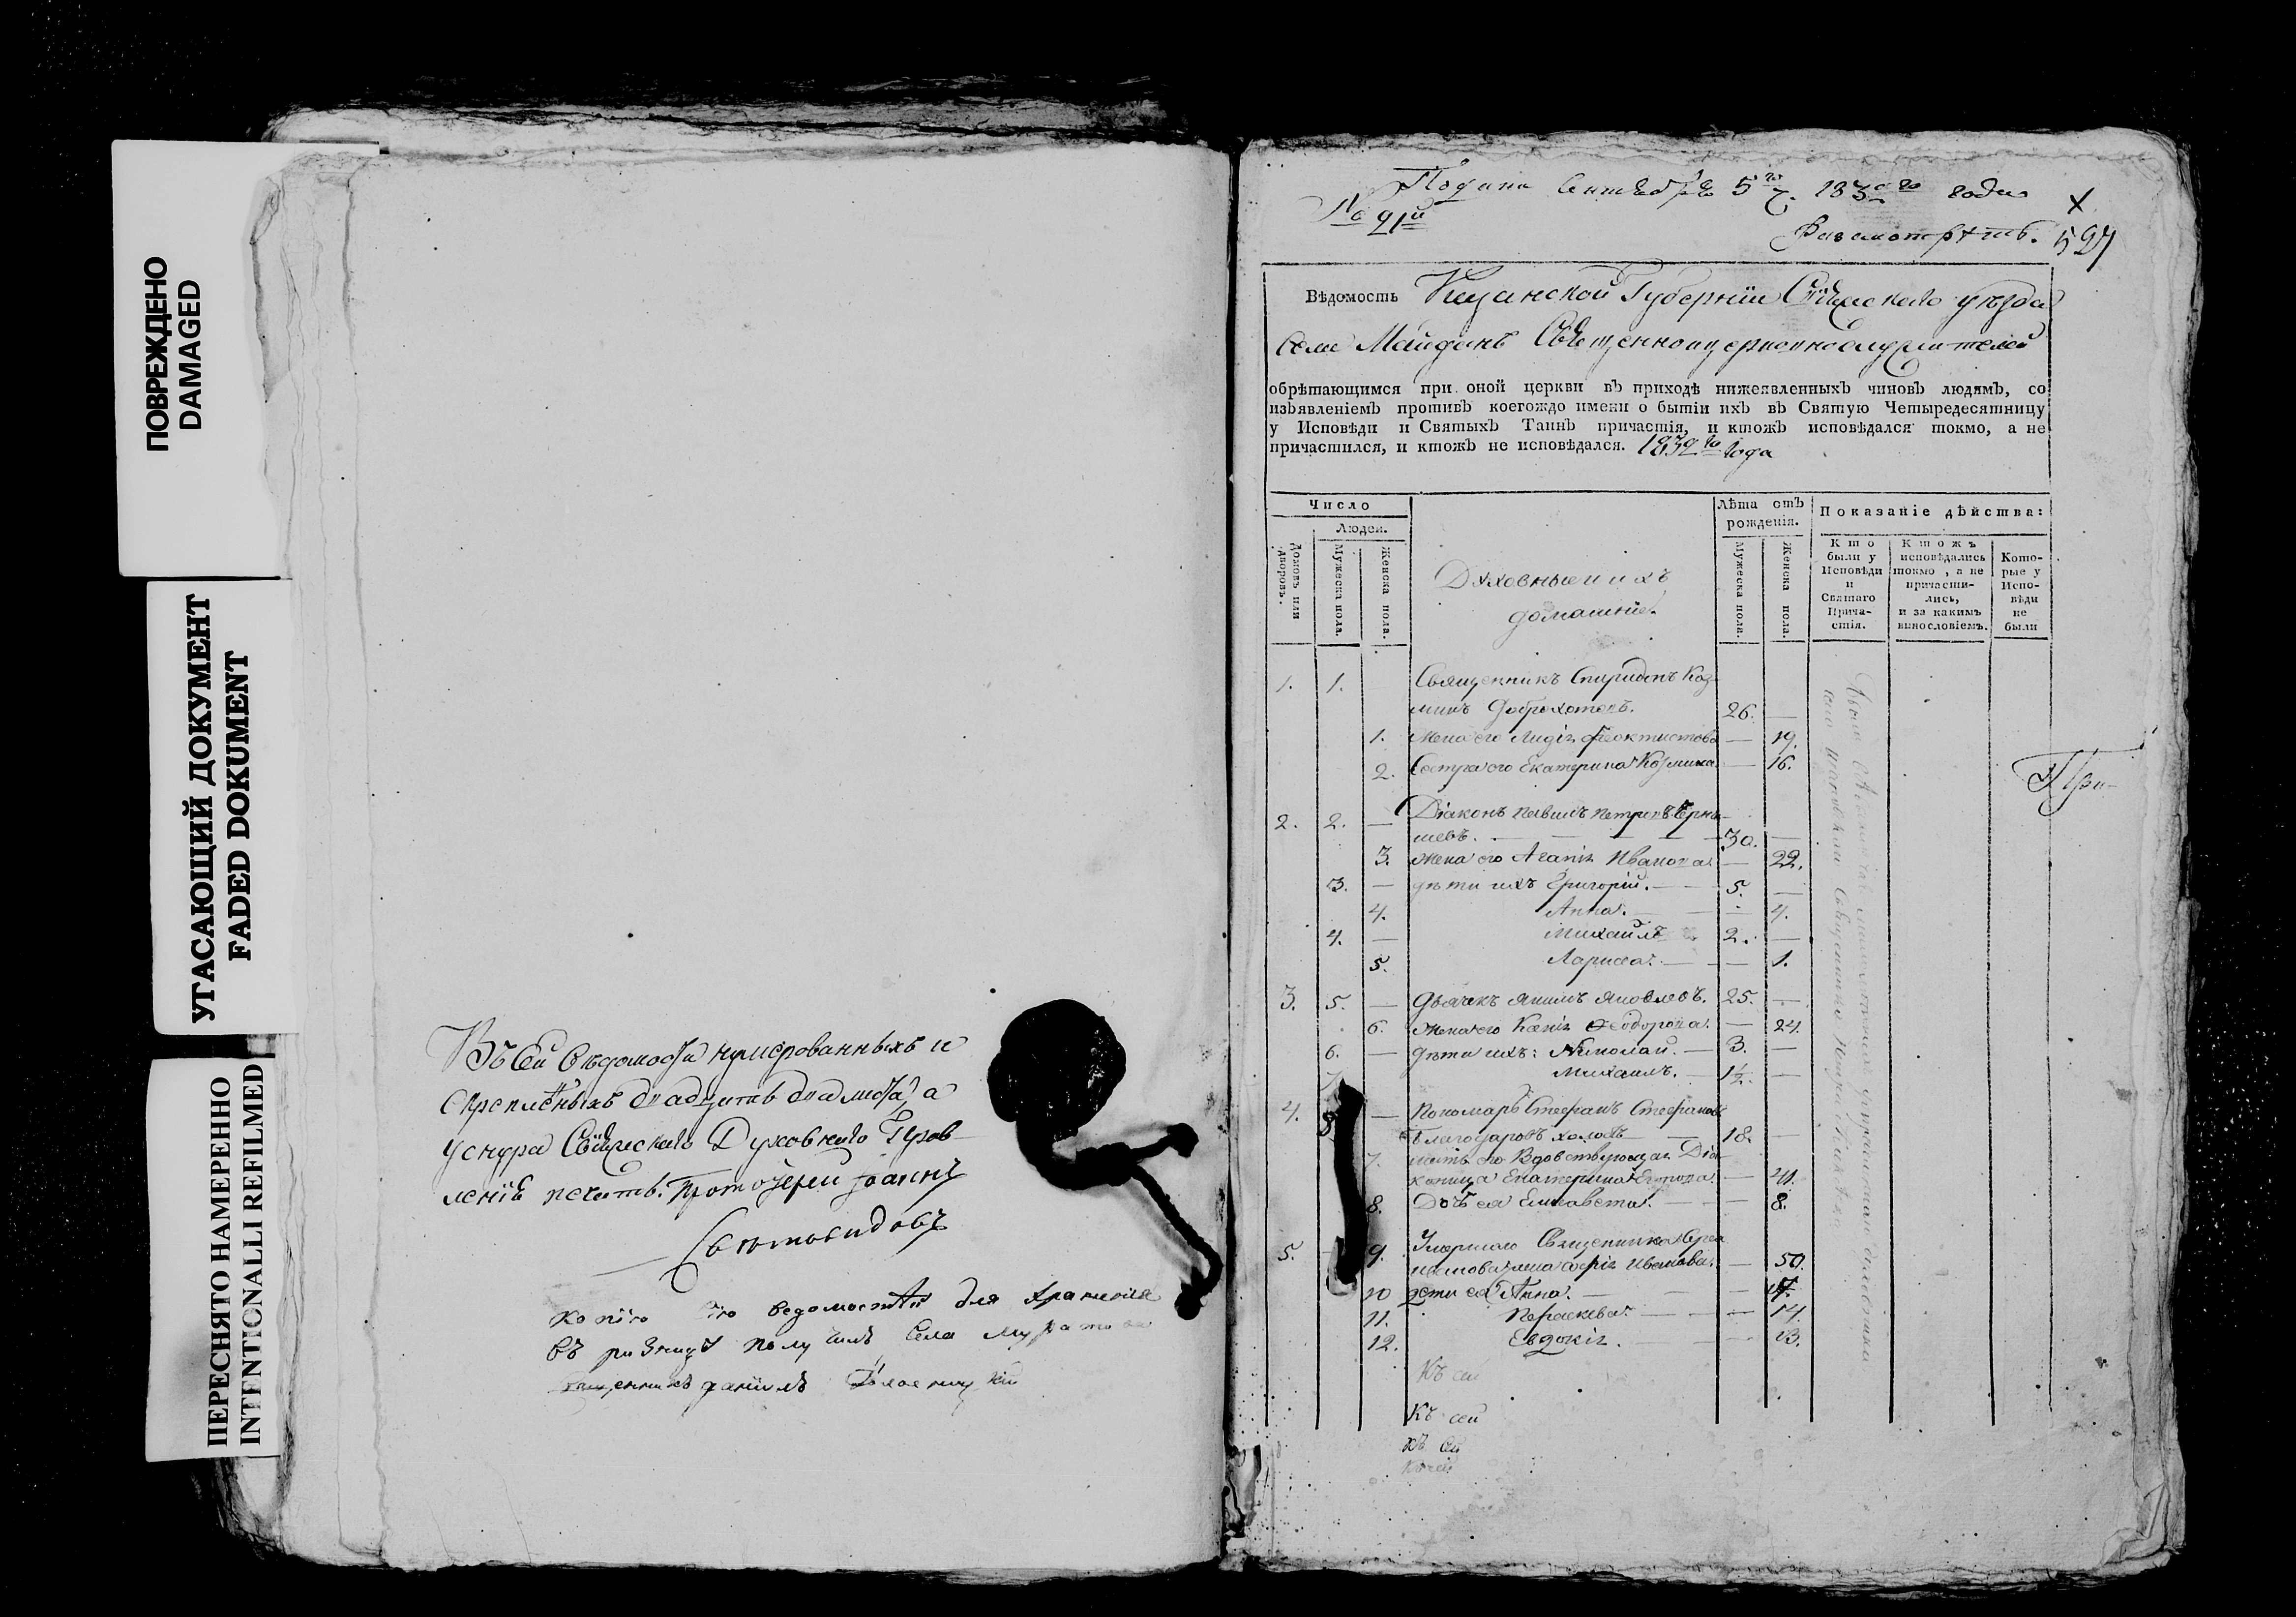 ПОВРЕЖДЕНО
DAMAGED
УГАСАЮЩИЙ ДОКУМЕНТ
FADED DOKUMENT
ПЕРЕСНЯТО НАМЕРЕННО
INTENTIONALLI REFILMED
Въ сей вѣдомости нумерованныхъ и
скрепленыхъ двадцать два листа, а
у снура Свіяжскаго Духовнаго Прав-
ленія печать. Протоіерей Іоаннъ
Святовидовъ
Копію сію ведомости для храненія
въ ризницѣ получилъ села Муратова
Даніилъ
Подана Сентября 5го 183 года
№ 91й
Разсмотрѣть. 597
Вѣдомость Казанской Губерніи Свіяжскаго уѣзда
Села Майданъ Священноцерковнослужителей
обрѣтающимся при оной церкви въ приходѣ нижеявленныхъ чиновъ людямъ, со
изъявленіемъ противъ коегождо имени о бытіи ихъ въ Святую Четыредесятницу
у Исповѣди и Святыхъ Таинъ причастія, и ктожъ исповѣдался токмо, а не
причастился, и ктожъ не исповѣдался. 1832го года
Число
Людей.
Домовъ или дворовъ.
Мужеска пола.
Женска пола.
Духовныи и ихъ
домашніе.
Лѣта отъ
рожденія.
Мужеска пола.
Женска пола.
Показаніе дѣйства:
Кто
были у
Исповѣди
и
Святаго
Прича-
стія.
Ктожъ
исповѣдались
токмо, а не
причасти-
лись,
и за какимъ
винословіемъ.
Кото-
рые у
Испо-
вѣди
не
были
1. 1. Священникъ Спиридонъ Коз-
минъ Доброхотовъ. 26. —
1. Жена его Лидія Феоктистова — 19.
2. Сестра его Екатерина Козмина — 16.
2. 2. — Діаконъ Павелъ Петровъ Черны-
шевъ. — 30. —
3. Жена его Агапія Иванова. — 22.
3. — дѣти ихъ Григорій. — 5. —
4. Анна. — 4.
4. — Михаилъ 2. —
5. Лариса. — 1.
3. 5. — Дьячекъ Якимъ Яковлевъ. 25. —
6. Жена его Ксенія Феодорова. — 24.
6. — дѣти ихъ: Николай. — 3. —
7. Михаилъ. — 1½. —
4. 8. — Пономарь Стефанъ Стефановъ
Благодаровъ холостъ 18. —
7. мать его Вдовствующая Діа-
коница Екатерина Егорова. — 41.
8. Дочь ея Елисавета. — 8.
5. — 9. Умершаго Священника
жена Иванова. — 50.
10 дѣти ея Анна. — 17.
11. Параскева. — 14.
12. Евдокія. — 13.
При-
Къ сей
Къ сей
Къ сей
Къ сей